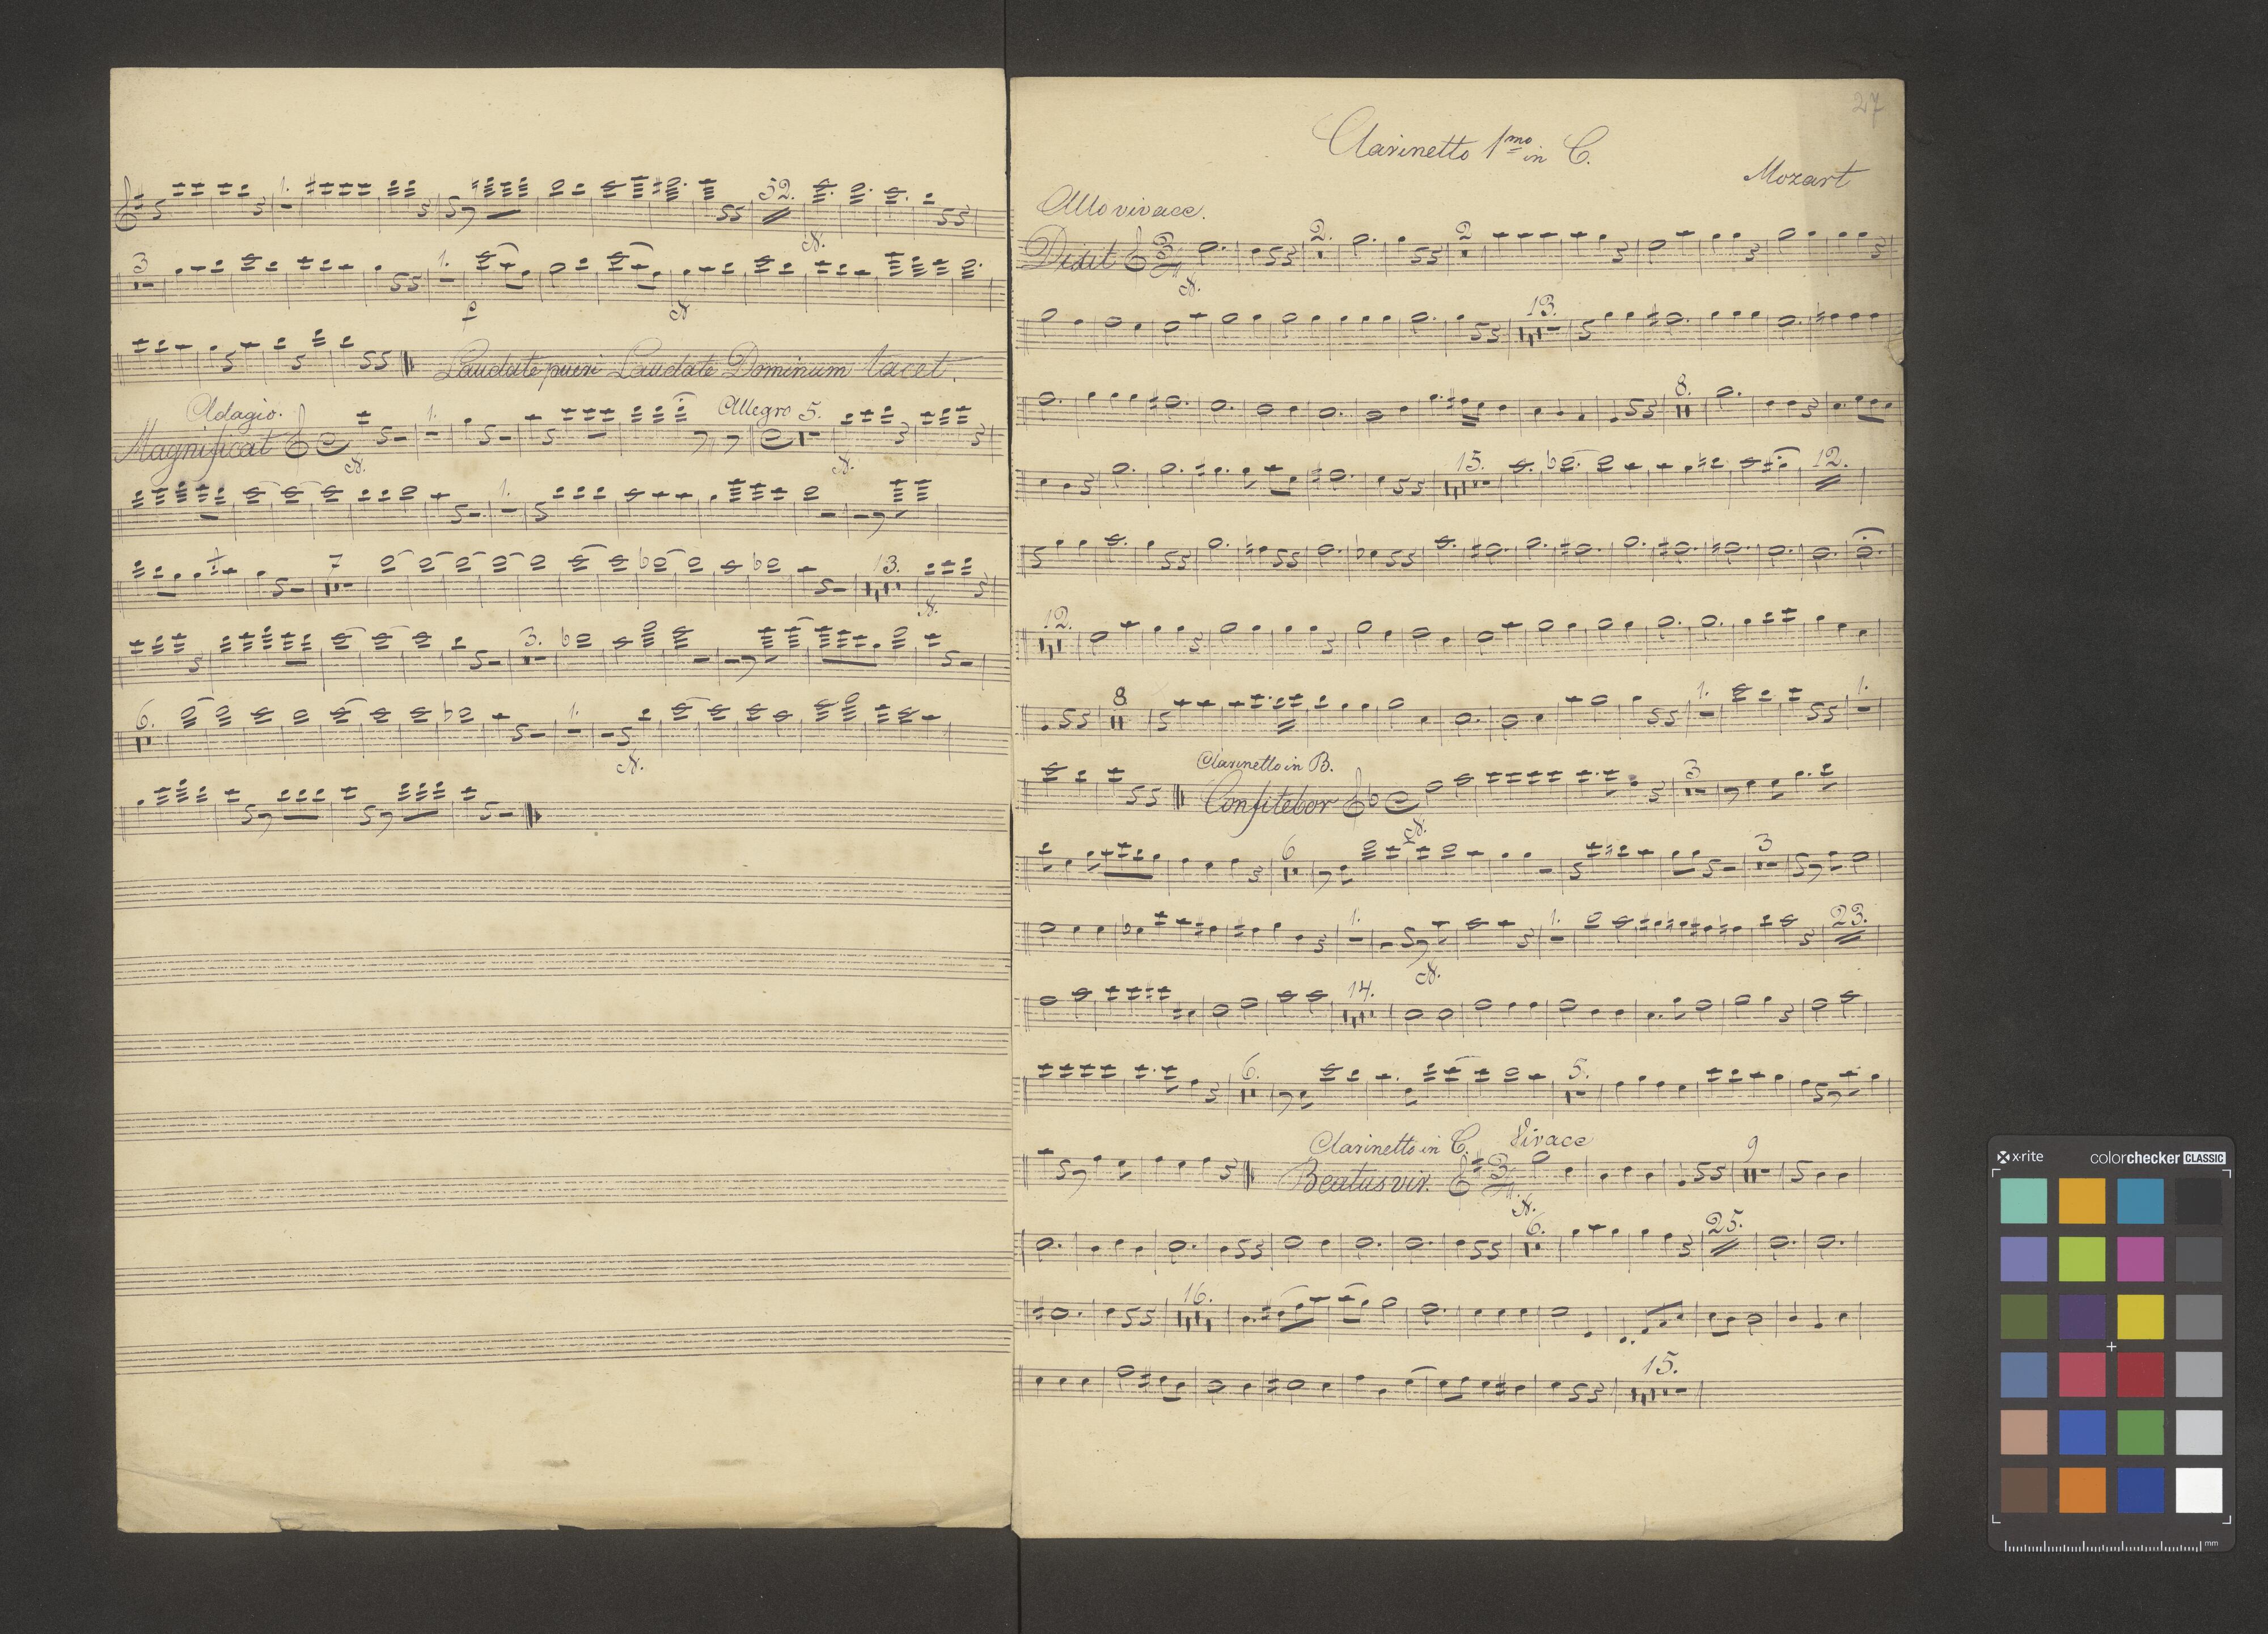 1.
52.
N.
3
1.
p
N
Laudate pueri Laudate Dominum tacet.
Adagio.
1.
Allegro 5.
Magnificat
N.
N.
1.
7
13.
N.
3.
6.
1.
N.
27
Clarinetto 1mo in C.
Mozart
Allo vivace.
2.
2
Dixit 3/4
N.
13.
8.
15.
12.
12.
8
1.
1.
Clarinetto in B.
Confitebor
3
N.
6
3
1.
1.
23.
N.
14.
6.
5.
Clarinetto in C. Vivace
9
Beatus vir. 3/4
N.
6.
25.
16.
15.
x-rite
colorchecker CLASSIC
mm